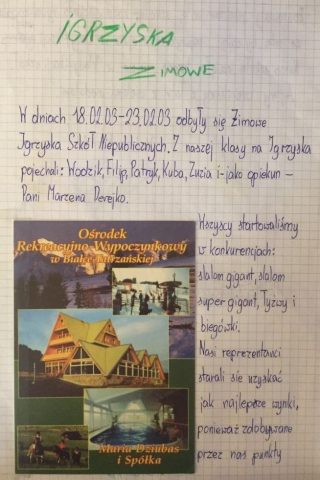 IGRZYSKA
ZIMOWE
W dniach 18.02.03-23.02.03 odbyły się Zimowe
Igrzyska Szkół Niepublicznych. Z naszej klasy na Igrzyska
pojechali: Wodzik, Filip, Patryk, Kuba, Zuzia i-jako opiekun -
Pani Marzena Derejko.
Ośrodek
Rekreacyjno-Wypoczynkowy
w Białce Tatrzańskiej
Maria Dziubas
i Spółka
Wszyscy startowaliśmy
w konkurencjach:
slalom gigant, slalom
super gigant, łyżwy i
biegówki.
Nasi reprezentanci
starali się uzyskać
jak najlepsze wyniki,
ponieważ zdobywane
przez nas punkty